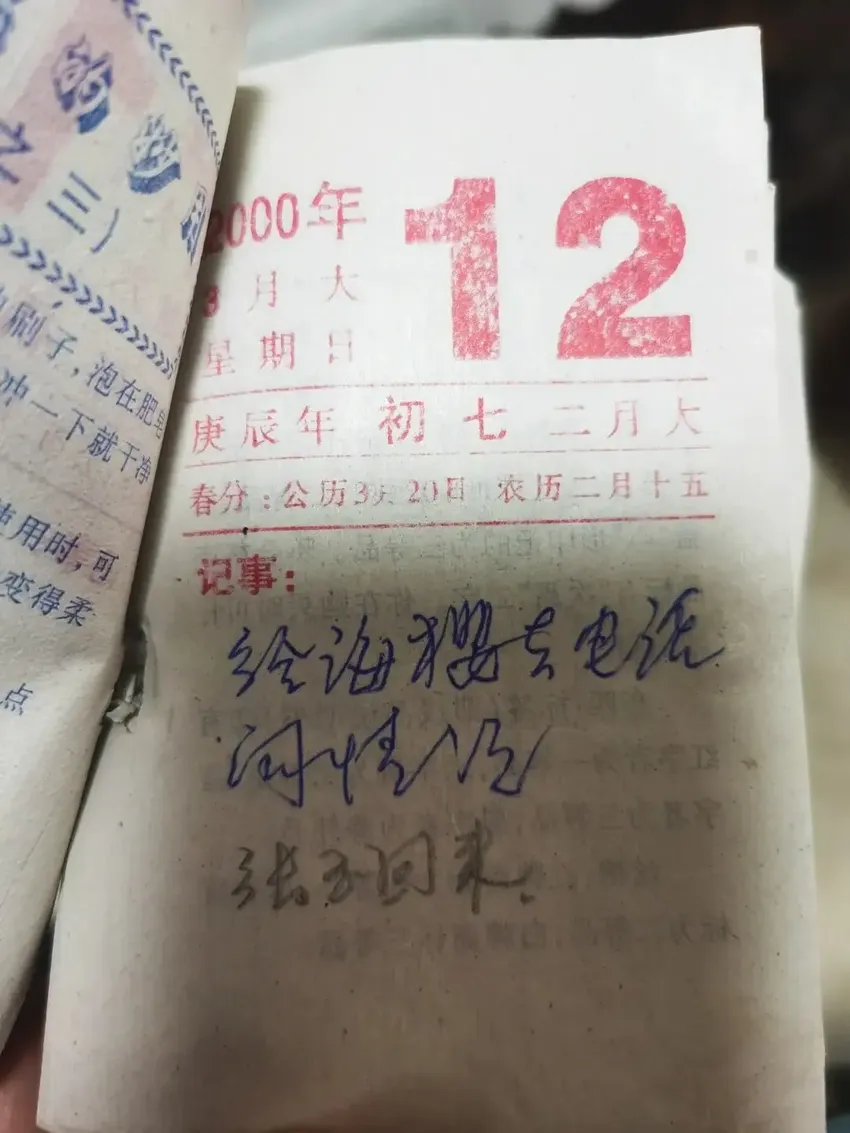 的妙用
之三）
刷子，泡在肥皂
冲一下就干净
使用时，可
变得柔
点
2000年
3月大
星期日
12
庚辰年 初七 二月大
春分：公历3月20日 农历二月十五
记事：
给海樱去电话
问情况
张玉回来.